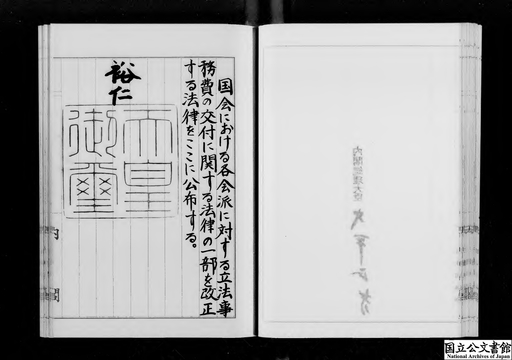 国会における各会派に対する立法事
務費の交付に関する法律の一部を改正
する法律をここに公布する。
裕仁
天皇
御璽
内閣
内閣総理大臣
国立公文書館
National Archives of Japan